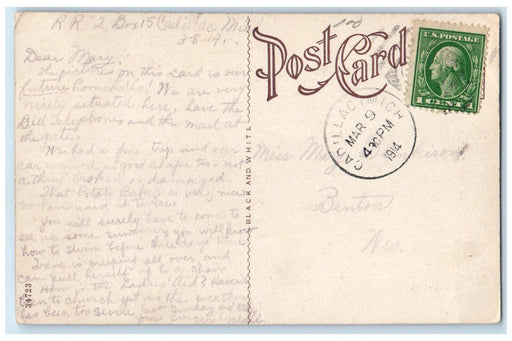 R.R. 2, Box 15 Cadillac Mich
3-8-14.
Dear Mary:
The picture on this card is our
future home ha ha! We are very
nicely situated here, have the
Bell Telephone and the mail at
the gate.
We had a fine trip and our
car came in good shape too - not
a thing broken or damaged.
That Potato Baker is very nice
we have used it twice.
You will surely have to come to
see us some summer you will know
how to swim before three days time
Irene is creeping all over and
can pull herself up to a chair
How is the Ladies' Aid? Haven't
been to church yet as the weather
has been too severe last Sunday
yours sincerely
34723
BLACK AND WHITE
Post Card
U.S. POSTAGE
1 CENT 1
CADILLAC, MICH
MAR 9
4 30 PM
1914
Miss Mary
Benton
Wis.